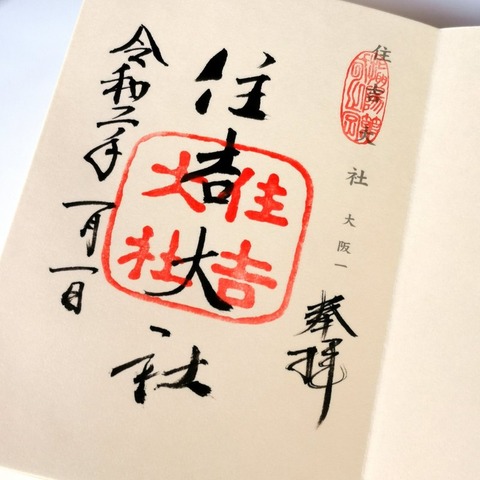 住吉大社 大阪一
奉拝
住吉大社
住吉
大社
令和二年一月一日